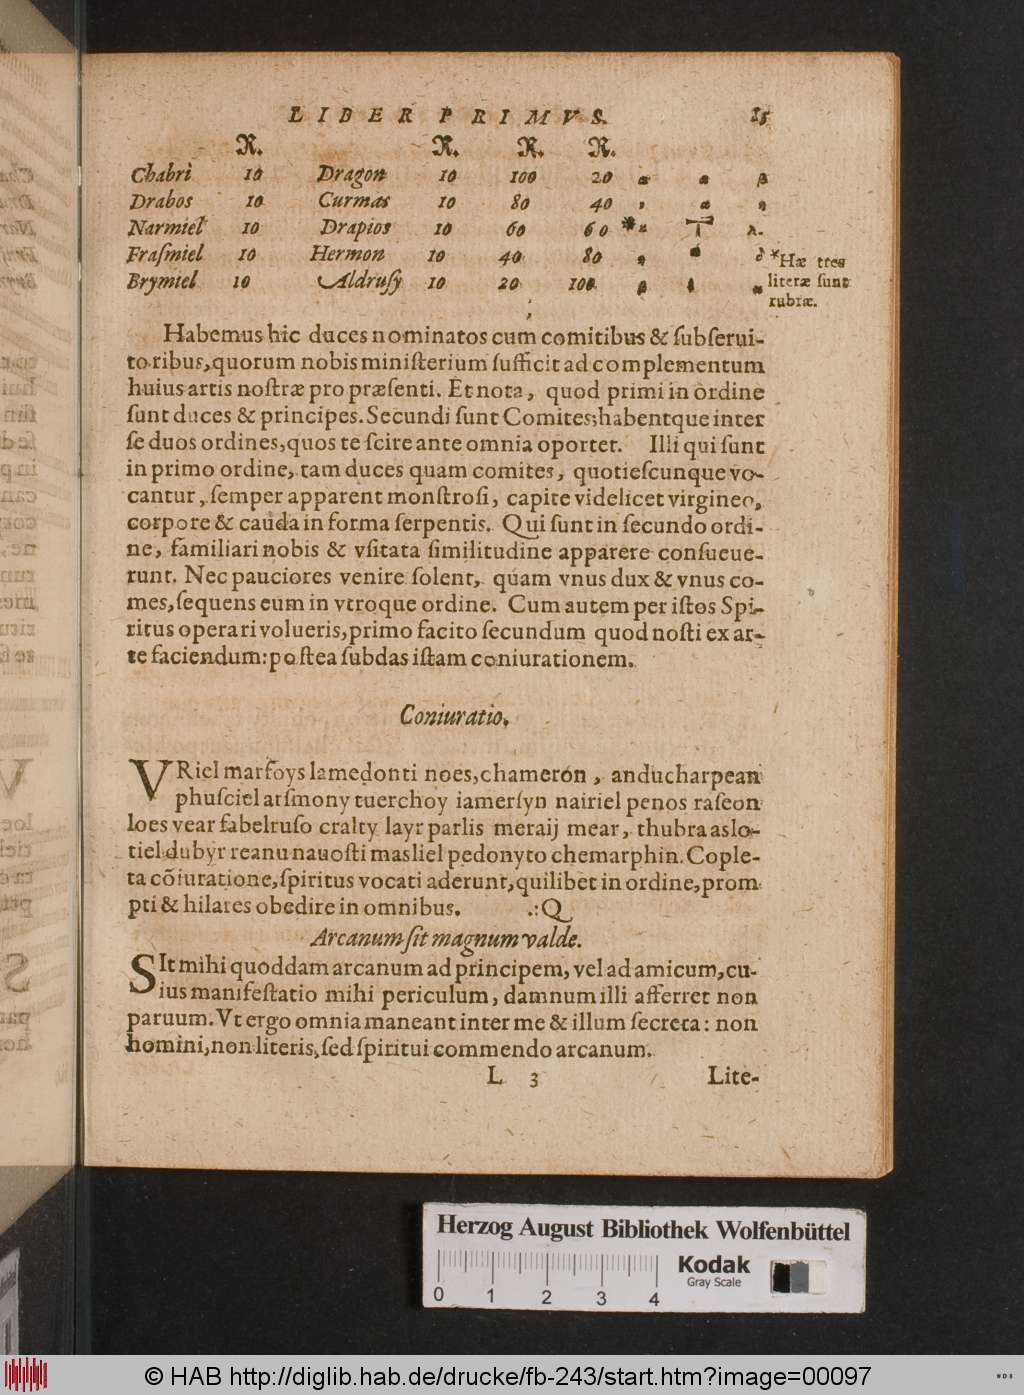 LIBER PRIMVS. 25
R. R. R. R.
Chabri 10 Dragon 10 100 20
Drabos 10 Curmas 10 80 40
Narmiel 10 Drapios 10 60 60
Fraſmiel 10 Hermon 10 40 80
Brymiel 10 Aldruſy 10 20 100
*Hæ tres
literæ ſunt
rubræ.
Habemus hic duces nominatos cum comitibus & ſubſerui-
toribus, quorum nobis miniſterium ſufficit ad complementum
huius artis noſtræ pro præſenti. Et nota, quod primi in ordine
ſunt duces & principes. Secundi ſunt Comites; habentque inter
ſe duos ordines, quos te ſcire ante omnia oportet. Illi qui ſunt
in primo ordine, tam duces quam comites, quotieſcunque vo-
cantur, ſemper apparent monſtroſi, capite videlicet virgineo,
corpore & cauda in forma ſerpentis. Qui ſunt in ſecundo ordi-
ne, familiari nobis & vſitata ſimilitudine apparere conſueue-
runt. Nec pauciores venire ſolent, quàm vnus dux & vnus co-
mes, ſequens eum in vtroque ordine. Cum autem per iſtos Spi-
ritus operari volueris, primo facito ſecundum quod noſti ex ar-
te faciendum: poſtea ſubdas iſtam coniurationem.
Coniuratio.
VRiel marſoys lamedonti noes, chameron, anducharpean
phuſciel arſmony tuerchoy iamerſyn nairiel penos raſeon
loes vear fabelruſo cralty layr parlis meraij mear, thubra aslo-
tiel dubyr reanu nauoſti masliel pedonyto chemarphin. Cople-
ta cõiuratione, ſpiritus vocati aderunt, quilibet in ordine, prom
pti & hilares obedire in omnibus. .:Q
Arcanum ſit magnum valde.
SIt mihi quoddam arcanum ad principem, vel ad amicum, cu-
ius manifeſtatio mihi periculum, damnum illi afferret non
paruum. Vt ergo omnia maneant inter me & illum ſecreta: non
homini, non literis, ſed ſpiritui commendo arcanum.
L 3 Lite-
Herzog August Bibliothek Wolfenbüttel
Kodak
Gray Scale
0 1 2 3 4
© HAB http://diglib.hab.de/drucke/fb-243/start.htm?image=00097